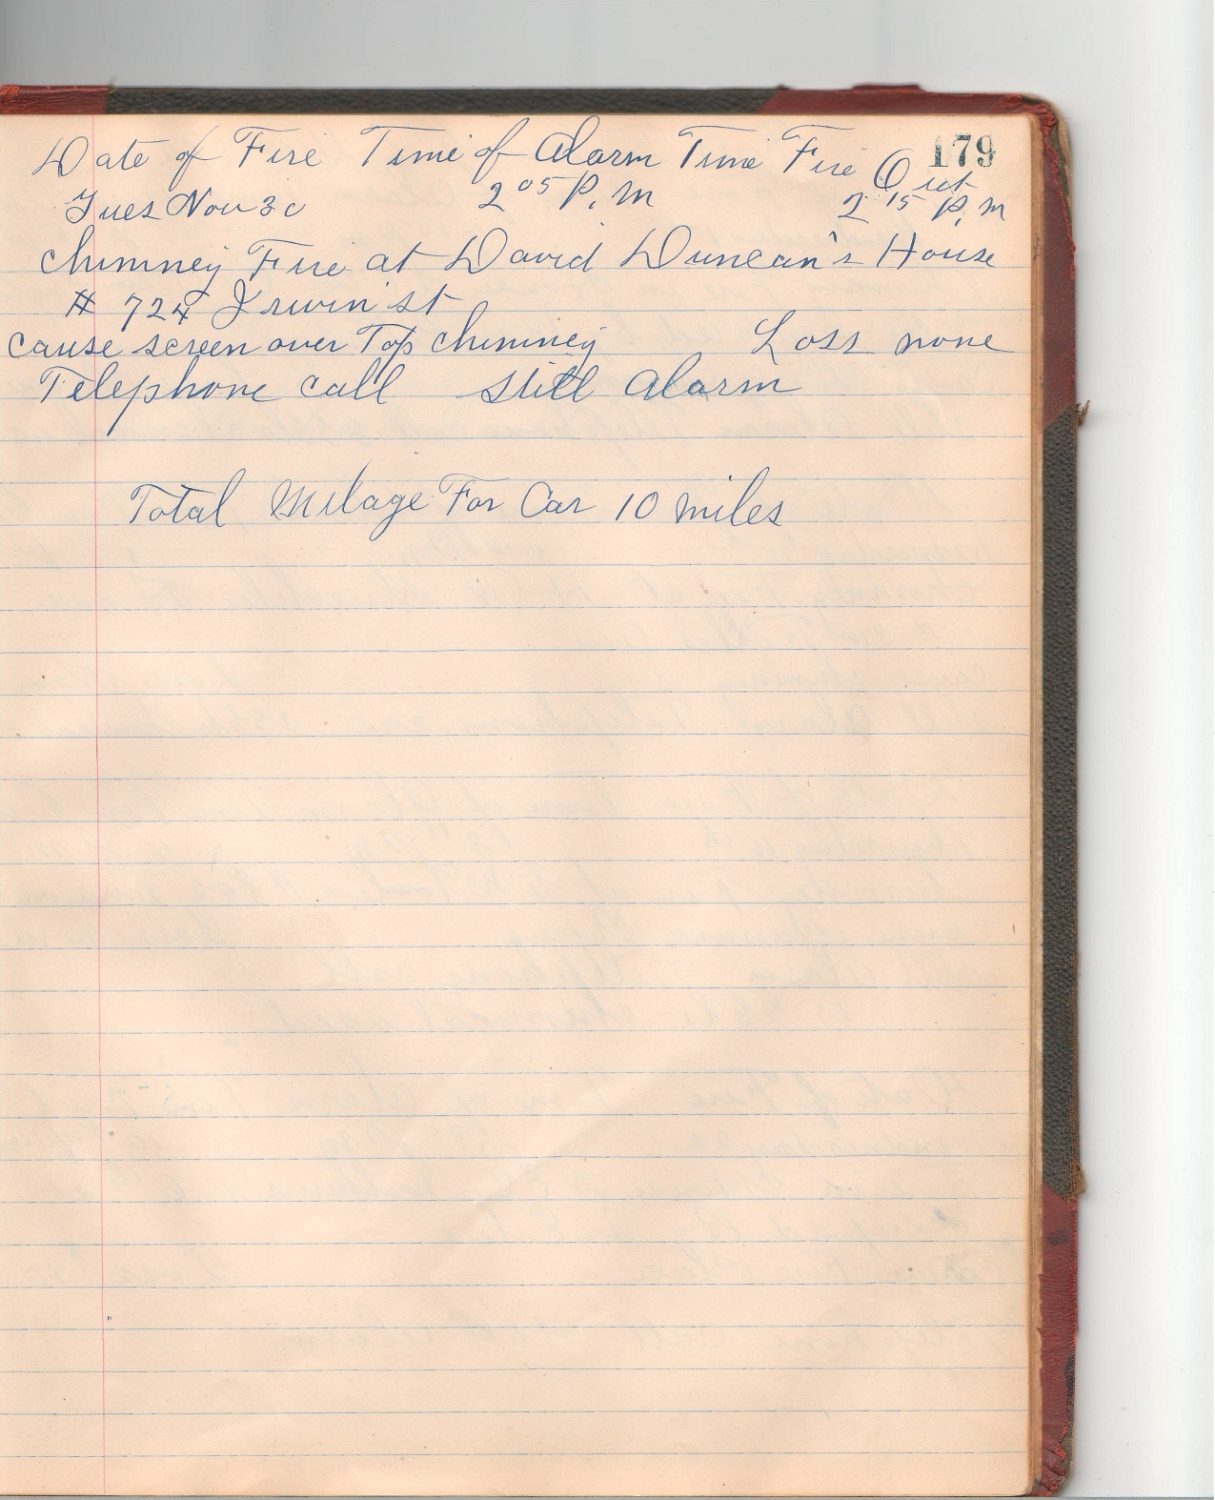 179
Date of Fire Time of Alarm Time Fire Out
Tues Nov 30 2 05 P.M 2 15 P.M
Chimney Fire at David Duncan's House
# 724 Irwin st
cause screen over Top chimney Loss none
Telephone call still alarm
Total Milage For Car 10 miles